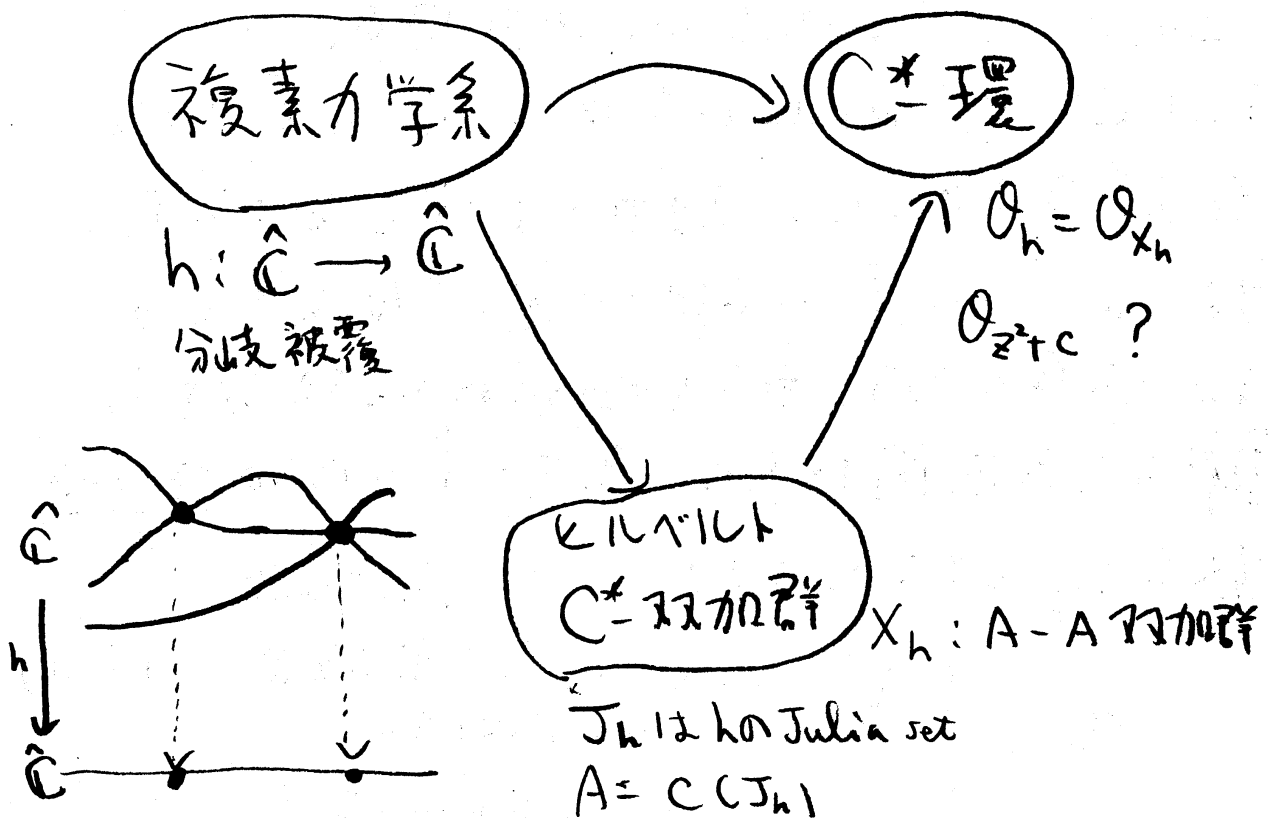 複素力学系
C*-環
h : Ĉ → Ĉ
分岐被覆
O_h = O_{X_h}
O_{z²+c} ?
Ĉ
h
Ĉ
ヒルベルト
C*-双加群
X_h : A - A 双加群
J_h は h の Julia set
A = C(J_h)